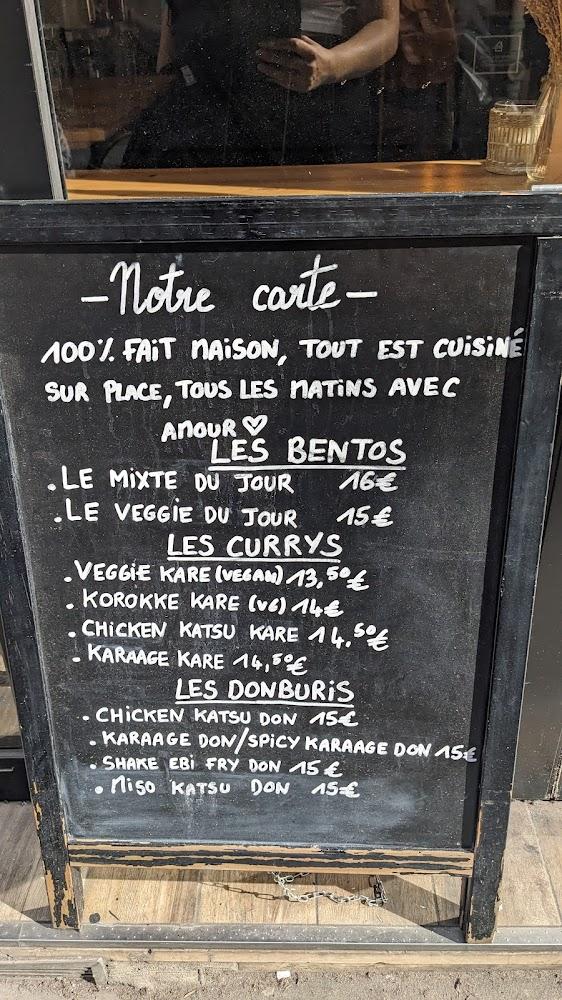 - Notre carte -
100% FAIT MAISON, TOUT EST CUISINÉ
SUR PLACE, TOUS LES MATINS AVEC
AMOUR ♡
LES BENTOS
. LE MIXTE DU JOUR 16€
. LE VEGGIE DU JOUR 15€
LES CURRYS
. VEGGIE KARE (VEGAN) 13,50€
. KOROKKE KARE (VG) 14€
. CHICKEN KATSU KARE 14,50€
. KARAAGE KARE 14,50€
LES DONBURIS
. CHICKEN KATSU DON 15€
. KARAAGE DON/SPICY KARAAGE DON 15€
. SHAKE EBI FRY DON 15€
. MISO KATSU DON 15€